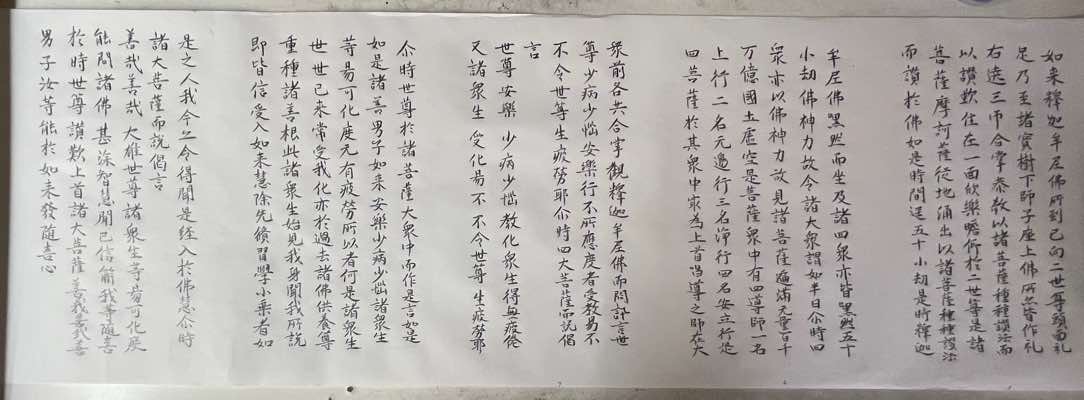 如来釋迦牟尼佛所到已向二世尊頭面礼
足乃至諸寶樹下師子座上佛所亦皆作礼
右遶三帀合掌恭敬以諸菩薩種種讚法而
以讚歎住在一面欣樂瞻仰於二世尊是諸
菩薩摩訶薩従地涌出以諸菩薩種種讚法
而讃於佛如是時間逕五十小劫是時釋迦
牟尼佛黙然而坐及諸四衆亦皆黙然五十
小劫佛神力故令諸大衆謂如半日尒時四
衆亦以佛神力故見諸菩薩遍滿无量百千
万億國土虛空是菩薩衆中有四導師一名
上行二名无邊行三名浄行四名安立行是
四菩薩於其衆中冣為上首唱導之師在大
衆前各共合掌觀釋迦牟尼佛而問訊言世
尊少病少惱安樂行不所應度者受教易不
不令世尊生疲勞耶尒時四大菩薩而說偈
言
世尊安樂 少病少惱 教化衆生 得無疲倦
又諸衆生 受化易不 不令世尊 生疲勞耶
尒時世尊於諸菩薩大衆中而作是言如是
如是諸善男子如来安樂少病少惱諸衆生
等易可化度无有疲勞所以者何是諸衆生
世世已来常受我化亦於過去諸佛供養尊
重種諸善根此諸衆生始見我身聞我所說
即皆信受入如来慧除先修習學小乗者如
是之人我今亦令得聞是経入於佛慧尒時
諸大菩薩而說偈言
善哉善哉 大雄世尊 諸衆生等 易可化度
能問諸佛 甚深智慧 聞已信 我等随喜
於時世尊讃歎上首諸大菩薩善哉善哉善
男子汝等能於如来發随喜心